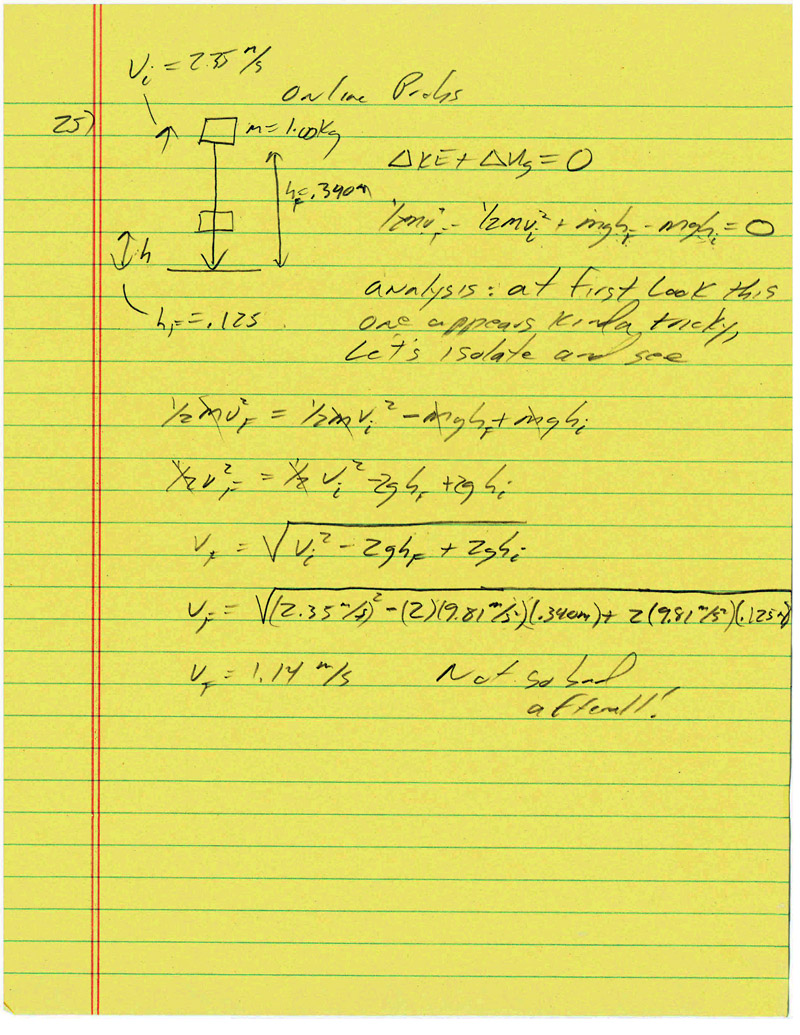 Vi = 2.35 m/s
Online Probs
25)
m = 1.00Kg
ΔKE + ΔUg = 0
hF = .340m
1/2mv²F - 1/2mvi² + mghF - mghi = 0
h
hF = .125
analysis: at first look this
one appears kinda tricky,
Let's isolate and see
1/2mv²F = 1/2mvi² - mghF + mghi
1/2v²F = 1/2vi² - 2ghF + 2ghi
vF = √vi² - 2ghF + 2ghi
vF = √(2.35 m/s)² - (2)(9.81 m/s²)(.340m) + 2(9.81 m/s²)(.125m)
vF = 1.14 m/s Not so bad
afterall!